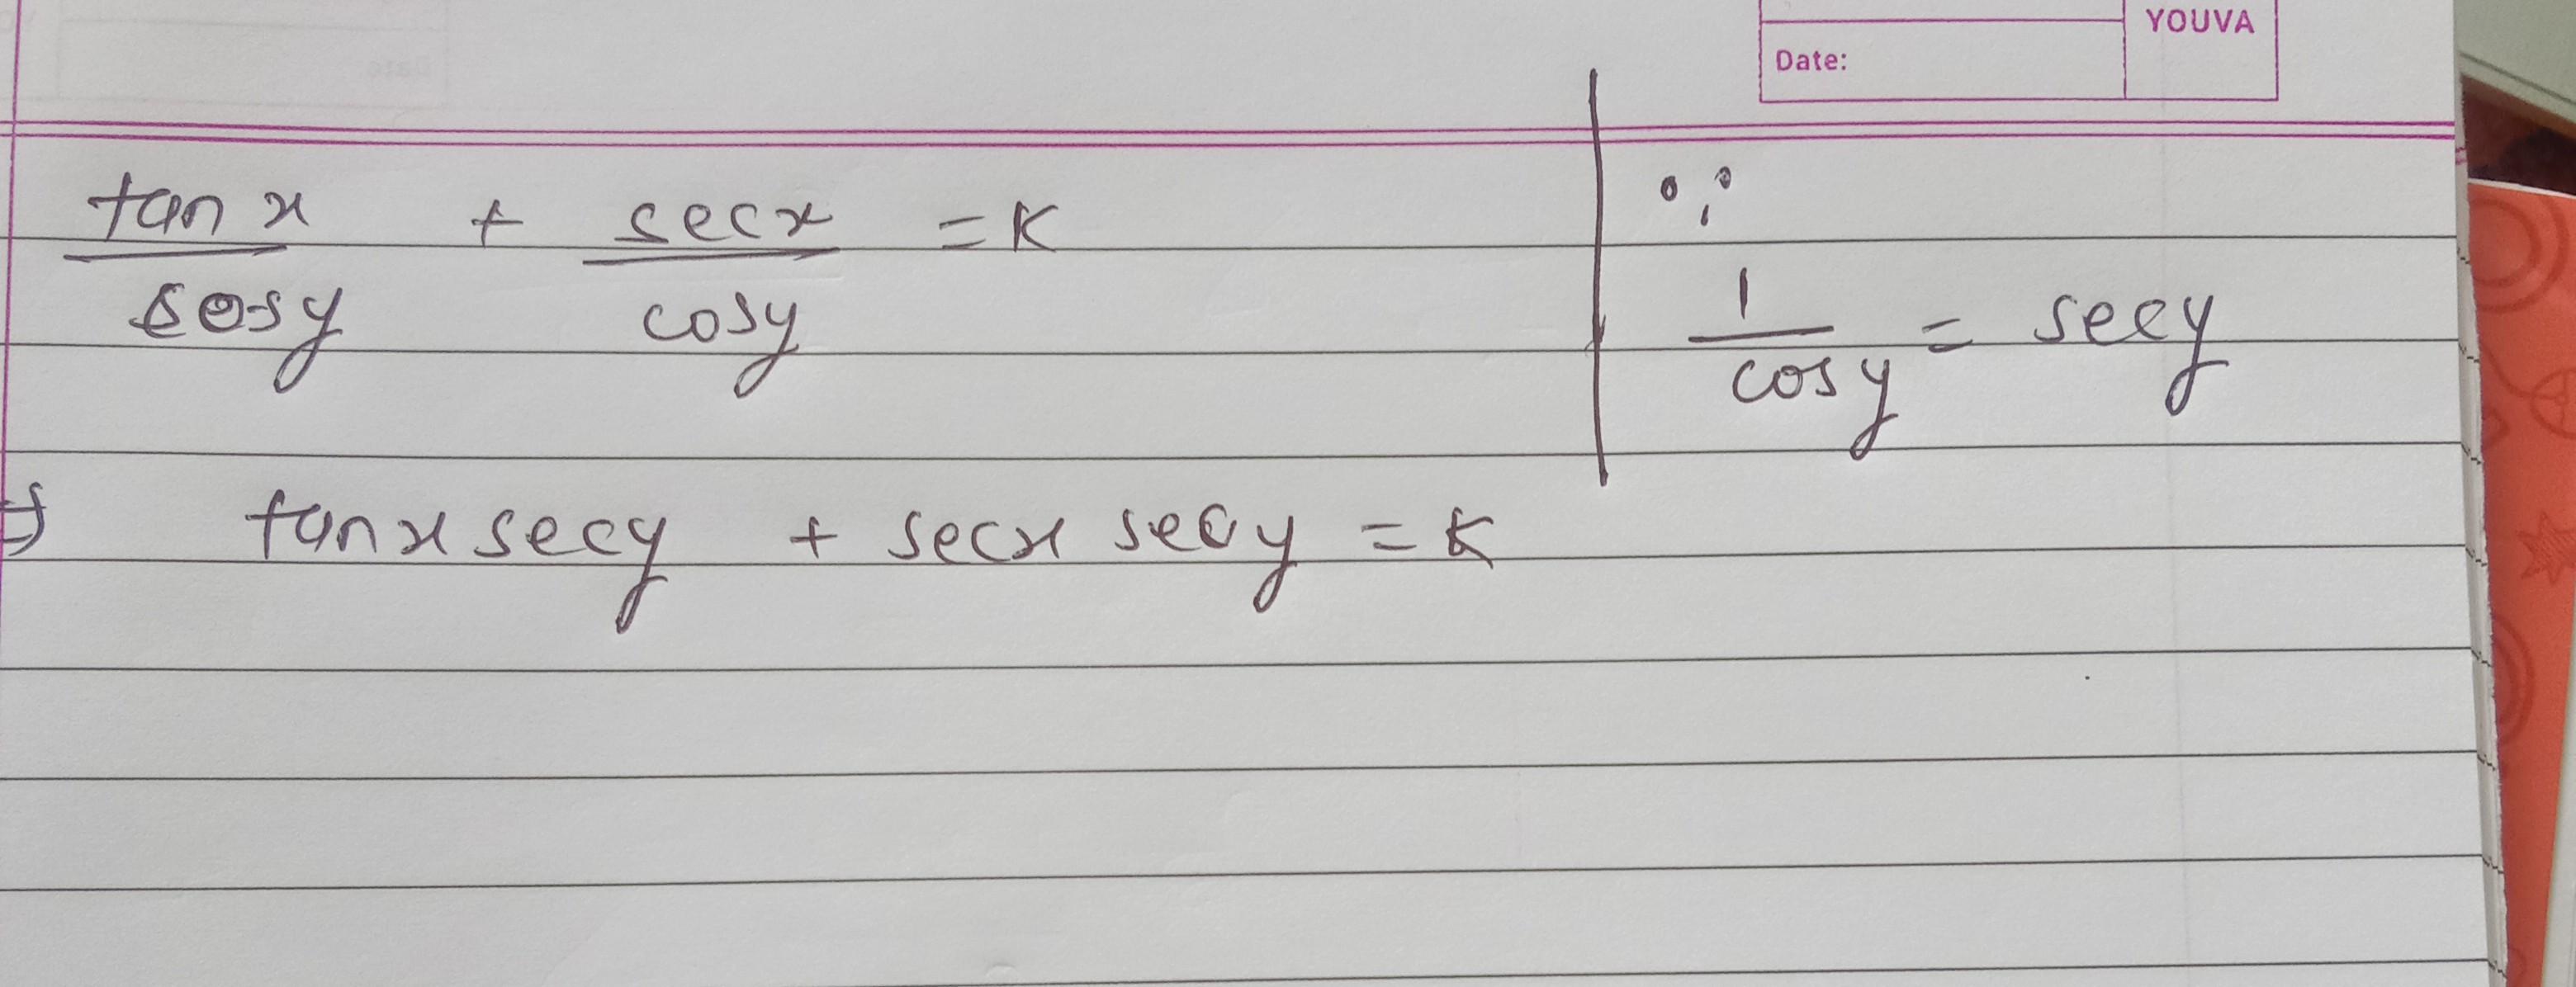 YOUVA
Date:
tan x / cosy + secx / cosy = K
∵
1 / cosy = secy
⇒ tanx secy + secx secy = K